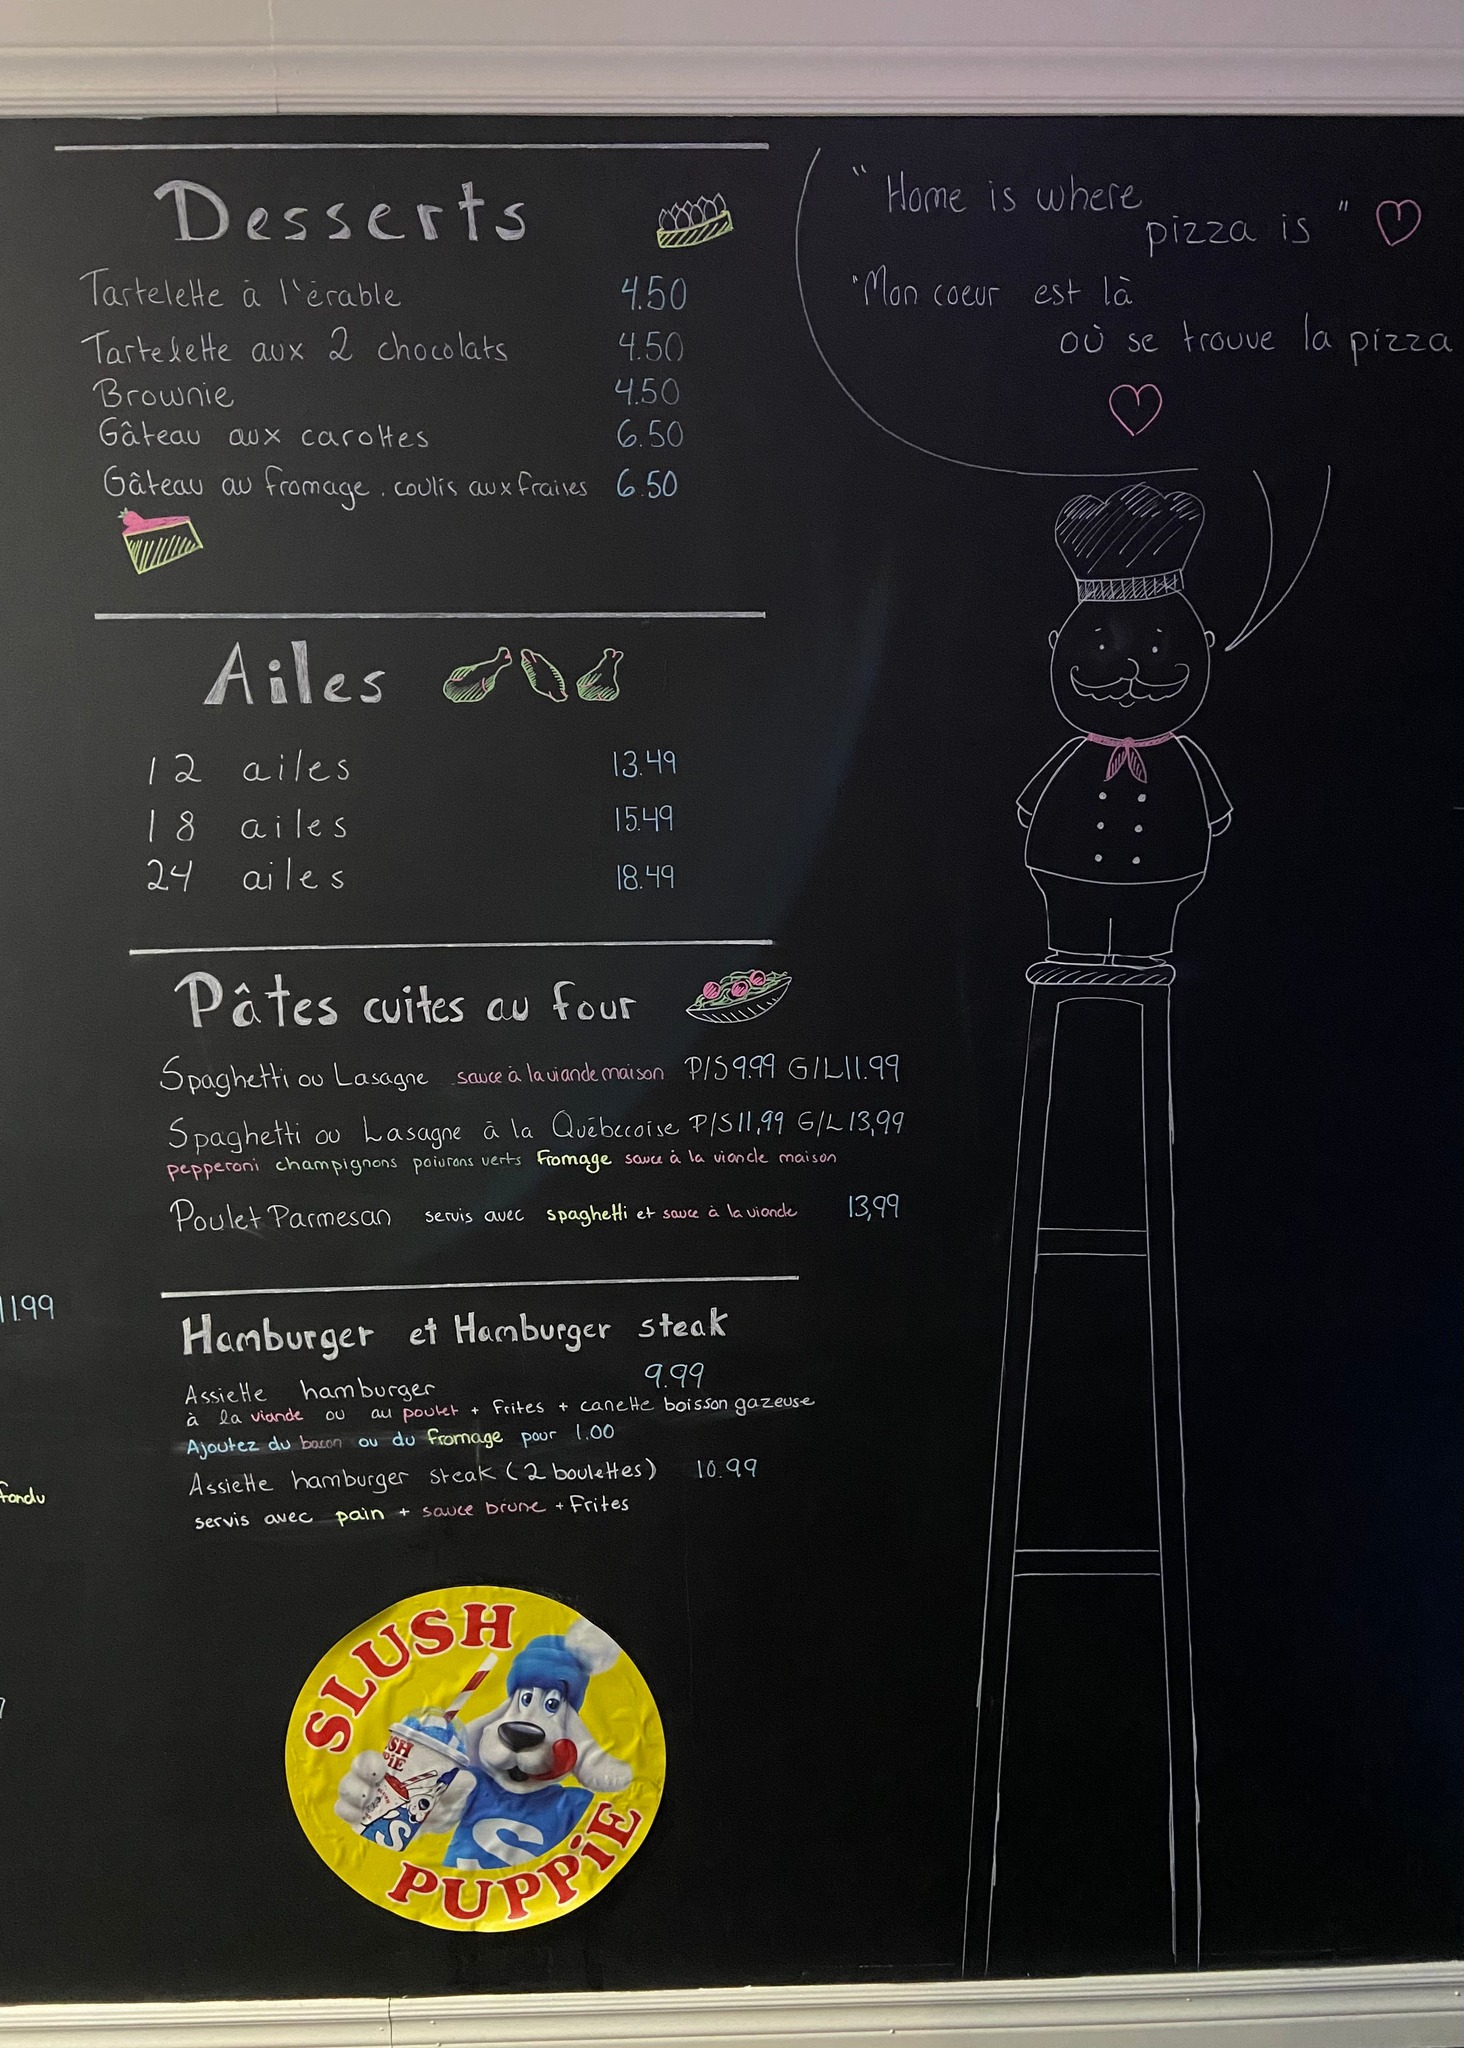 Desserts
Tartelette à l'érable 4.50
Tartelette aux 2 chocolats 4.50
Brownie 4.50
Gâteau aux carottes 6.50
Gâteau au fromage. coulis aux fraises 6.50
Ailes
12 ailes 13.49
18 ailes 15.49
24 ailes 18.49
Pâtes cuites au four
Spaghetti ou Lasagne sauce à la viande maison P/S 9.99 G/L 11.99
Spaghetti ou Lasagne à la Québecoise P/S 11,99 G/L 13,99
pepperoni champignons poivrons verts fromage sauce à la viande maison
Poulet Parmesan servis avec spaghetti et sauce à la viande 13,99
Hamburger et Hamburger steak
Assiette hamburger 9.99
à la viande ou au poulet + Frites + canette boisson gazeuse
Ajoutez du bacon ou du fromage pour 1.00
Assiette hamburger steak (2 boulettes) 10.99
servis avec pain + sauce brune + Frites
SLUSH
PUPPiE
"Home is where
pizza is"
"Mon coeur est là
où se trouve la pizza
11.99
fondu